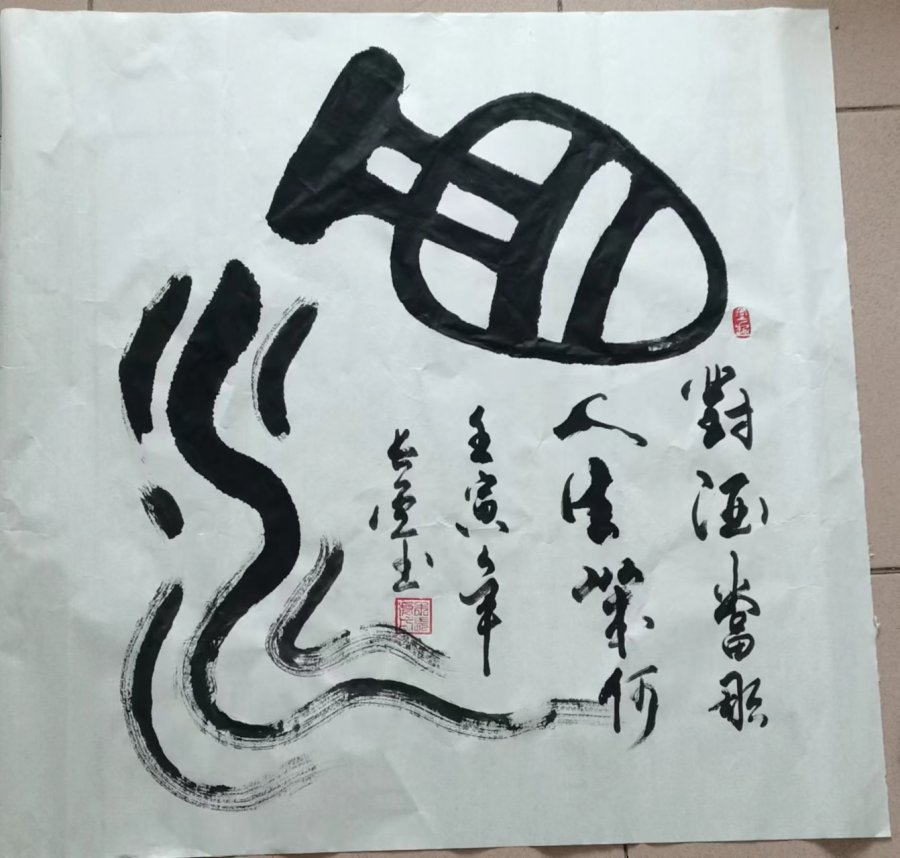 酒
對酒當歌
人生幾何
壬寅年
长雲书